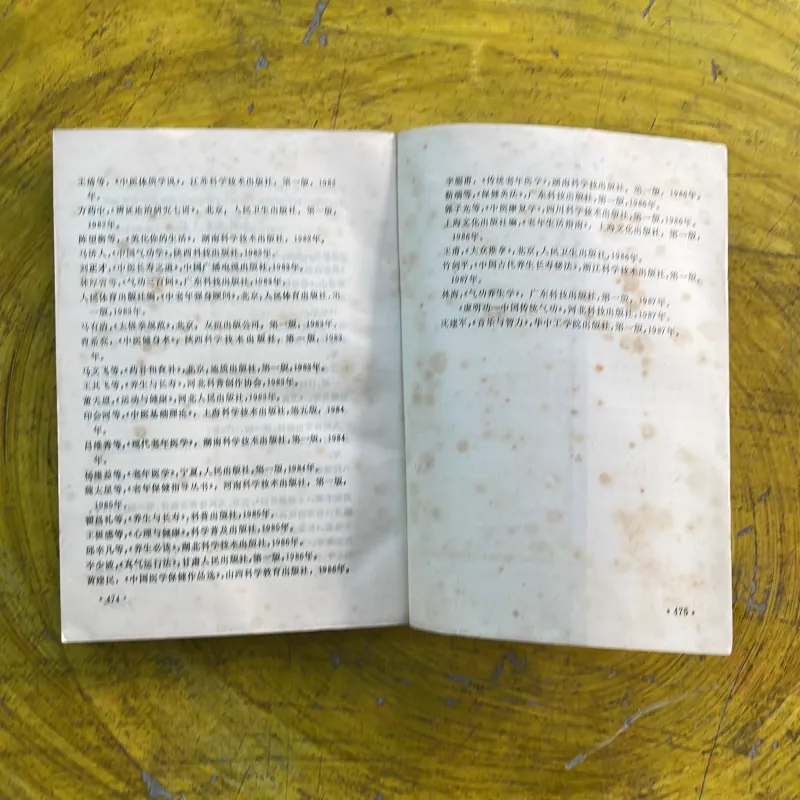 王琦等,《中医体质学说》,江苏科学技术出版社,第一版,1982
年。
方药中,《辨证论治研究七讲》,北京,人民卫生出版社,第一版,
陈望衡等,《美化你的生活》,湖南科学技术出版社,1982年。
马济人,《中国气功学》,陕西科技出版社,1983年。
刘正才,《中医长寿之道》,中国广播电视出版社,1983年。
林厚省等,《气功三百问》,广东科技出版社,1983年。
人民体育出版社编,《中老年保身顾问》,北京,人民体育出版社,第
一版,1983年。
马有清,《太极拳规范》,北京,友谊出版公司,第一版,1983年。
《中医健身术》,陕西科学技术出版社,第一版,1983
年。
马文飞等,《药补和食补》,北京,地质出版社,第一版,1983年。
王其飞等,《养生与长寿》,河北科普创作协会,1983年。
《活动与健康》,河北人民出版社,1983年。
印会河等,《中医基础理论》,上海科学技术出版社,第五版,1984
年。
吕维善等,《现代老年医学》,湖南科学技术出版社,第一版,1984
年。
杨继益等,《老年医学》,宁夏,人民出版社,第一版,1984年。
施大星等,《老年保健指导丛书》,河南科学技术出版社,第一版,
1985年。
翻昌礼等,《养生与长寿》,科普出版社,1985年。
王极盛等,《心理与健康》,科学普及出版社,1985年。
邱本凡等,《养生必读》,湖北科学技术出版社,1986年。
李少波,《真气运行法》,甘肃人民出版社,第一版,1986年。
黄建民,《中国医学保健作品选》,山西科学教育出版社,1986年。
·474·
《传统老年医学》,湖南科学技出版社,第一版,1986年。
《保健灸法》,广东科技出版社,第一版,1986年。
郭子光等,《中医康复学》,四川科学技术出版社,第一版,1986年。
上海文化出版社编,《老年生活指南》,上海文化出版社,第一版,
1986年。
王甫,《大众推拿》,北京,人民卫生出版社,第一版,1986年。
竹剑平,《中国古代养生长寿秘法》,浙江科学技术出版社,第一版,
1987年。
林海,《气功养生学》,广东科技出版社,第一版,1987年。
《虚明功—中国传统气功》,河北科技出版社,1987年。
庄建军,《音乐与智力》,华中工学院出版社,第一版,1987年。
·475·